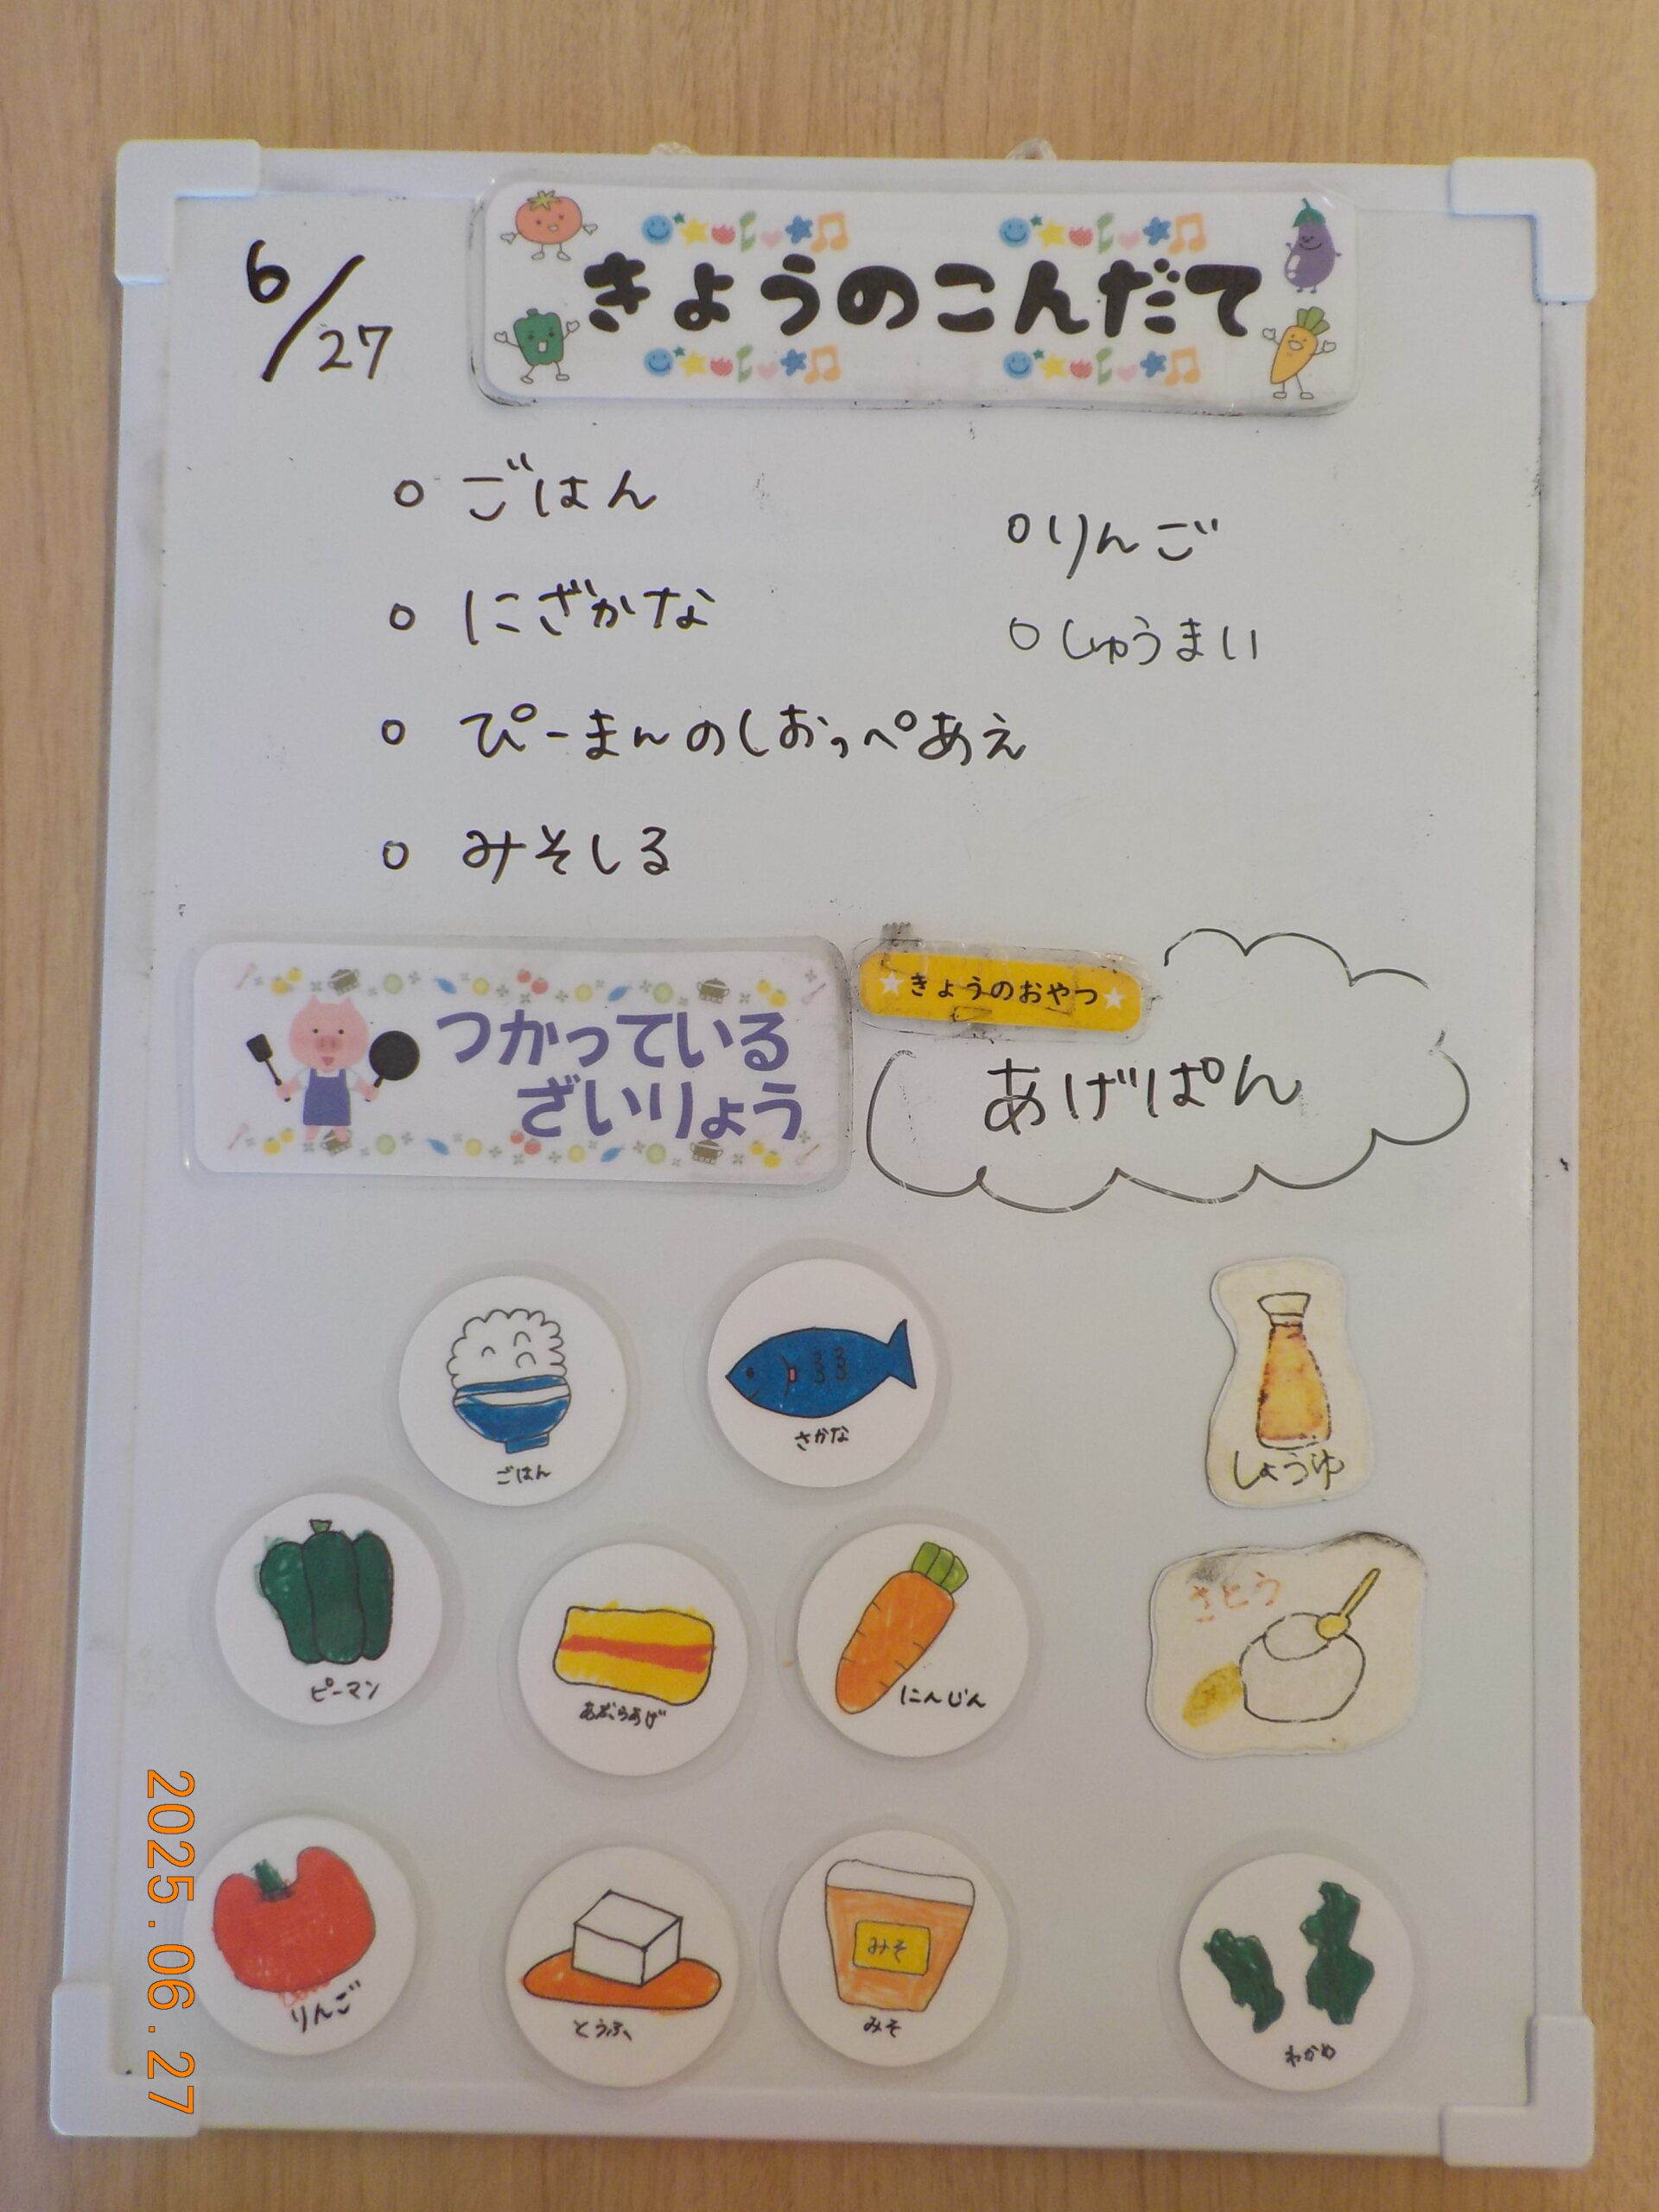 6/27
きょうのこんだて
○ ごはん
○ にざかな
○ ぴーまんのしおっぺあえ
○ みそしる
○りんご
○しゅうまい
つかっている
ざいりょう
★きょうのおやつ★
あげぱん
ごはん
さかな
しょうゆ
ピーマン
あぶらあげ
にんじん
さとう
りんご
とうふ
みそ
みそ
わかめ
2025.06.27